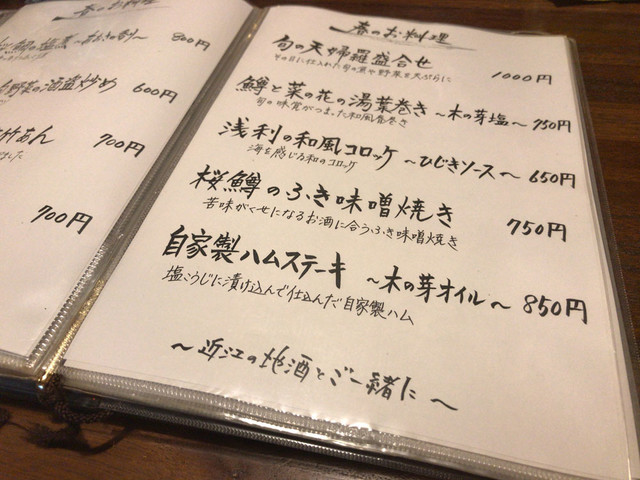 春のお料理
800円
野菜の酒盗炒め 600円
竹あん 700円
ました
700円
春のお料理
旬の天婦羅盛合せ 1000円
その日に仕入れた旬の魚や野菜を天ぷらに
鱒と菜の花の湯葉巻き ～木の芽塩～ 750円
旬の味覚がつまった和風春巻き
浅利の和風コロッケ ～ひじきソース～ 650円
海を感じる和のコロッケ
桜鱒のふき味噌焼き 750円
苦味がくせになるお酒に合うふき味噌焼き
自家製ハムステーキ ～木の芽オイル～ 850円
塩こうじに漬け込んで仕込んだ自家製ハム
～近江の地酒とご一緒に～